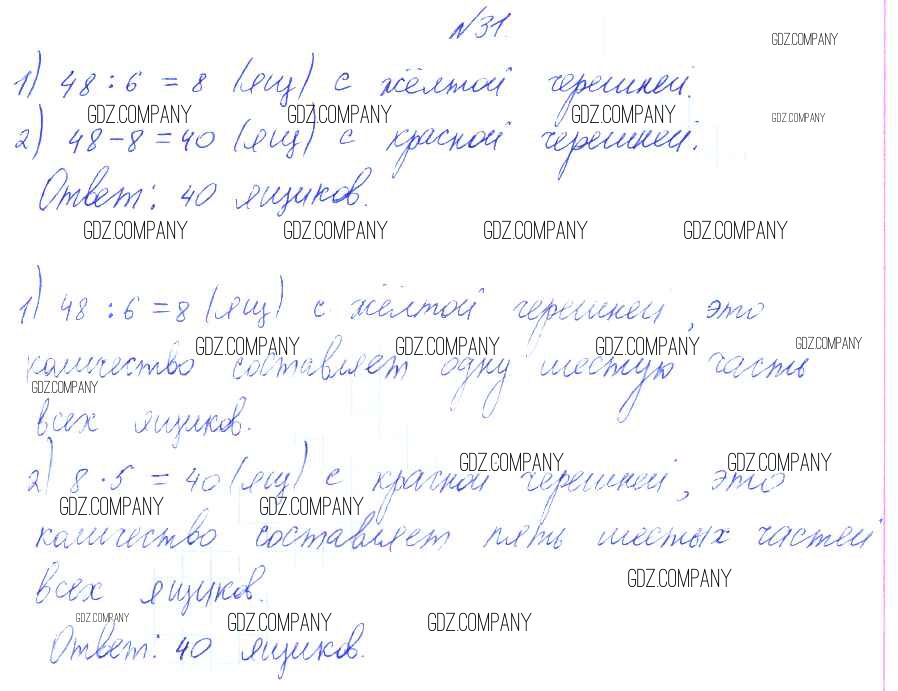 №31.
GDZ.COMPANY
1) 48 : 6 = 8 (ящ) с жёлтой черешней.
GDZ.COMPANY GDZ.COMPANY GDZ.COMPANY GDZ.COMPANY
2) 48 - 8 = 40 (ящ) с красной черешней.
Ответ: 40 ящиков.
GDZ.COMPANY GDZ.COMPANY GDZ.COMPANY GDZ.COMPANY
1) 48 : 6 = 8 (ящ) с жёлтой черешней, это
GDZ.COMPANY GDZ.COMPANY GDZ.COMPANY GDZ.COMPANY
количество составляет одну шестую часть
GDZ.COMPANY
всех ящиков.
GDZ.COMPANY GDZ.COMPANY
2) 8 · 5 = 40 (ящ) с красной черешней, это
GDZ.COMPANY GDZ.COMPANY
количество составляет пять шестых частей
GDZ.COMPANY
всех ящиков.
GDZ.COMPANY GDZ.COMPANY GDZ.COMPANY
Ответ: 40 ящиков.